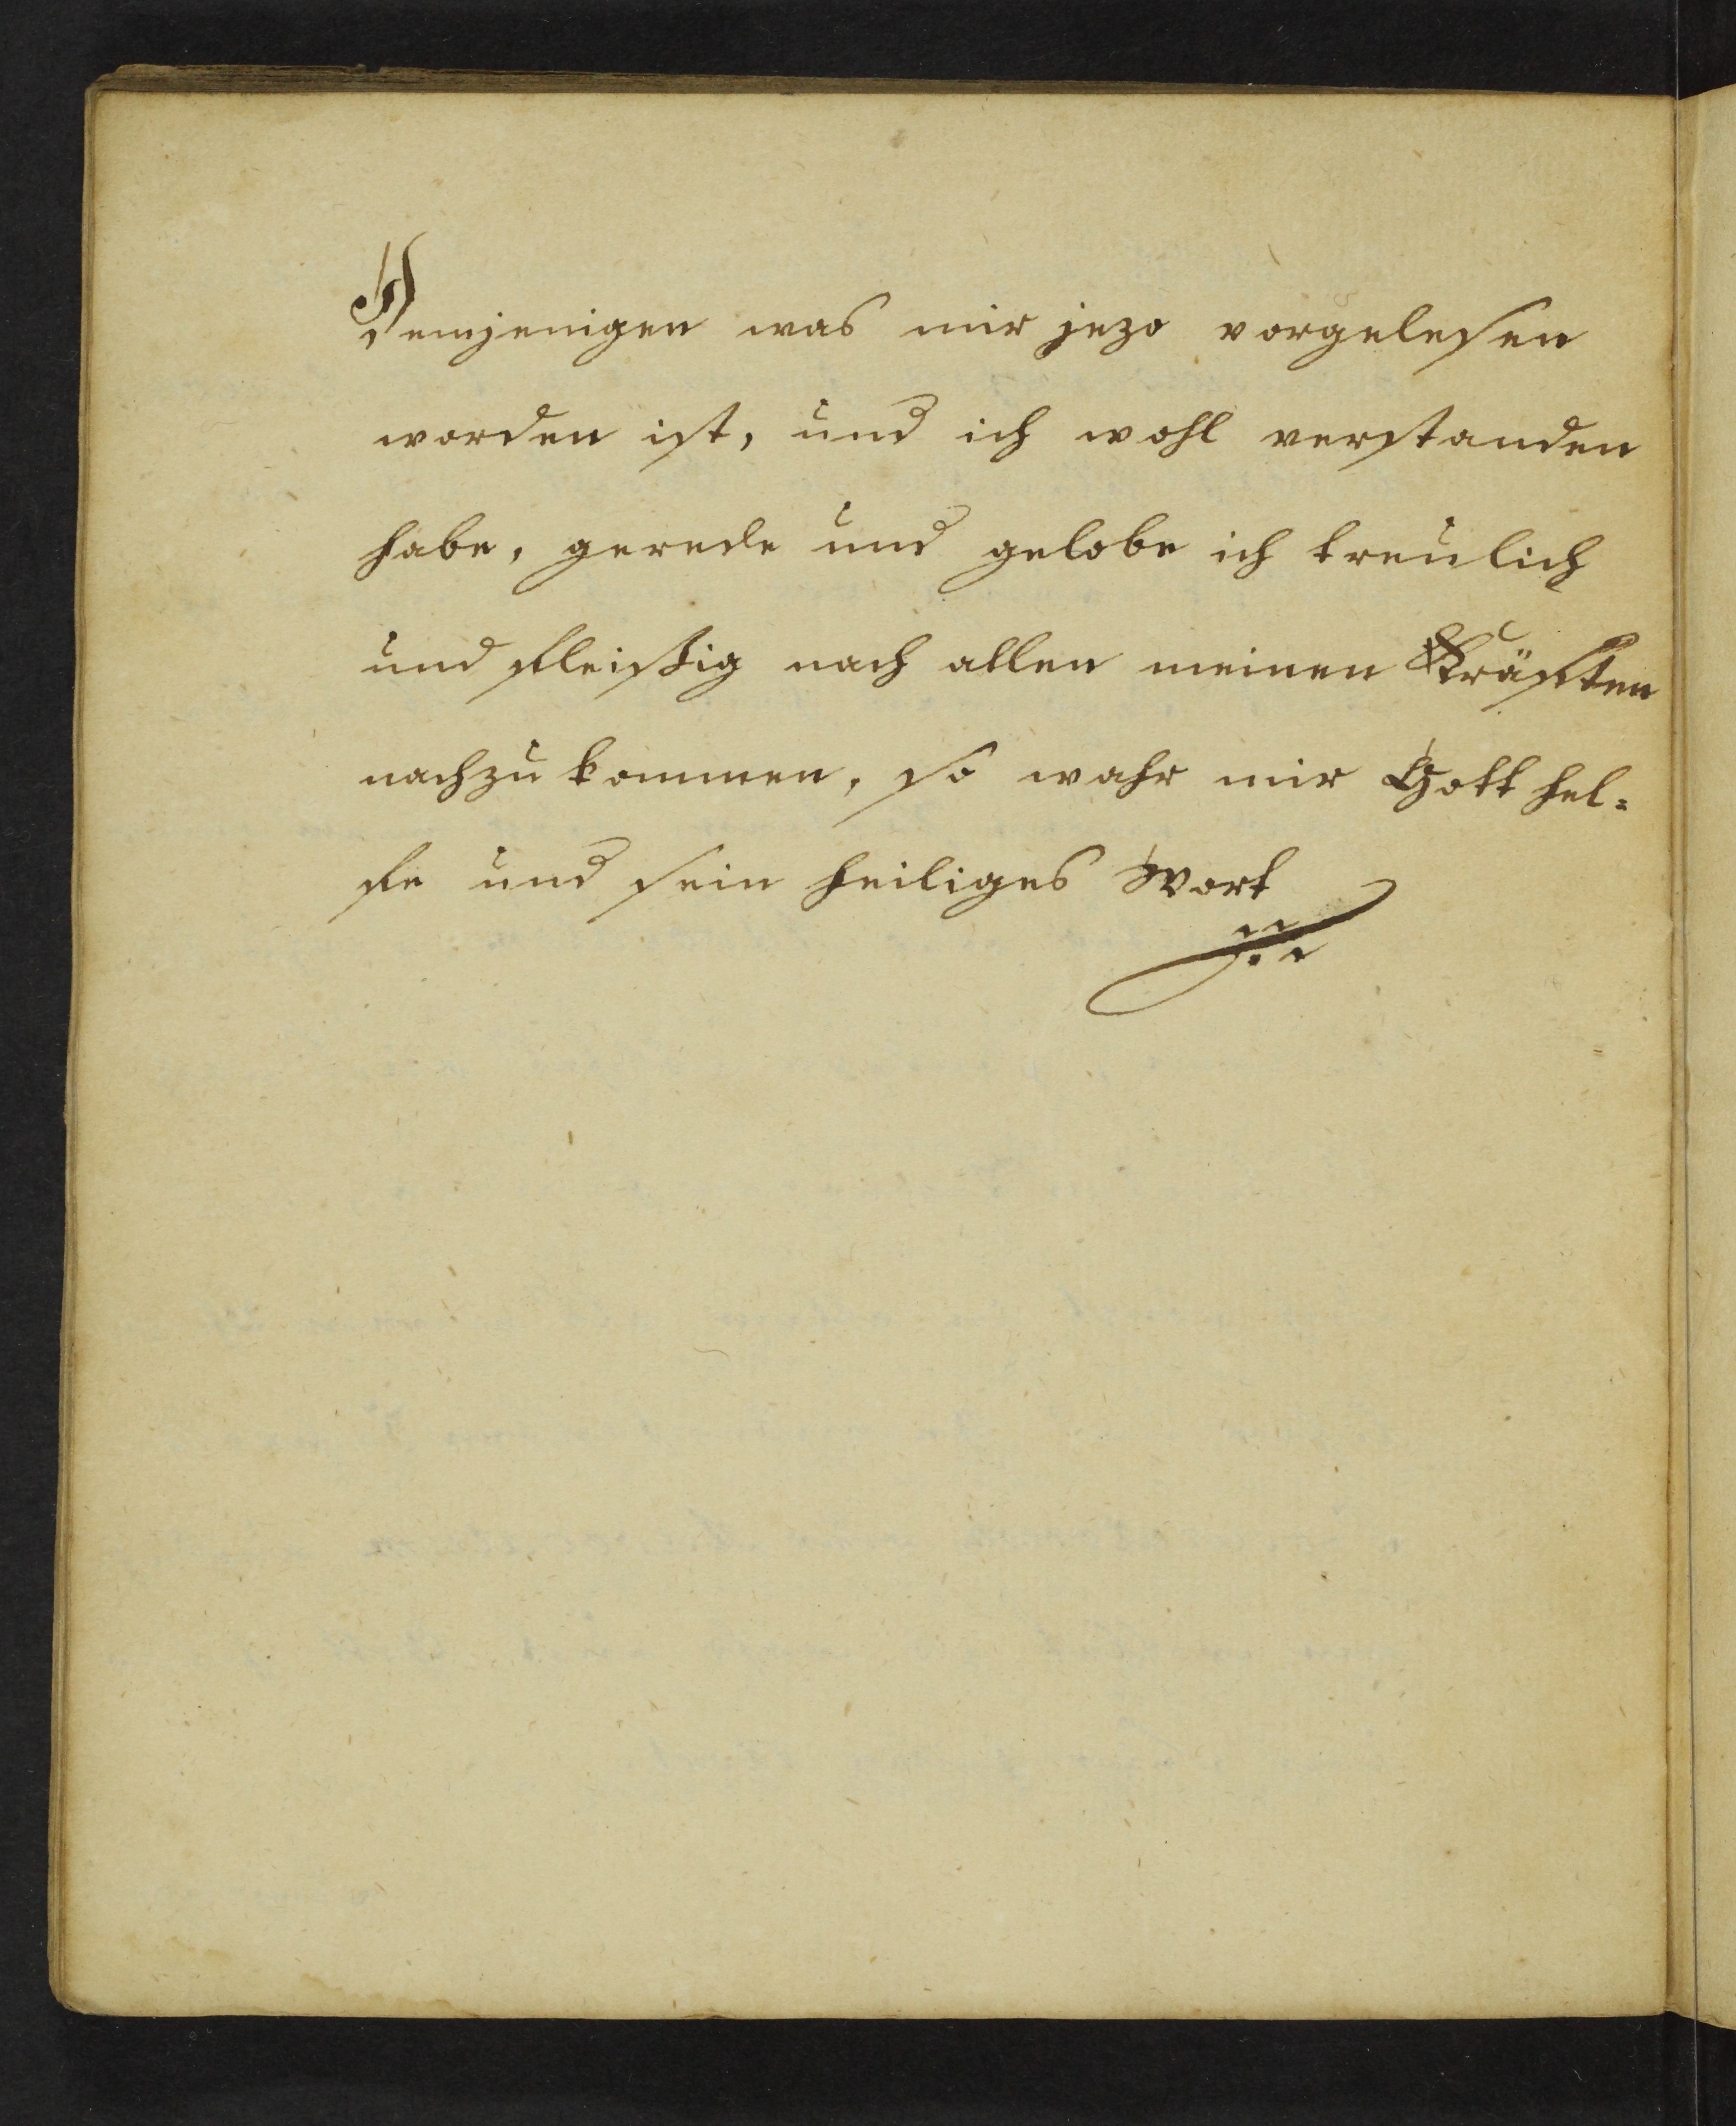 Demjenigen was mir jezo vorgelesen
worden ist, und ich wohl verstanden
habe, gerede und gelobe ich treulich
und fleißig nach allen meinen Kräften
nachzukommen, so wahr mir Gott hel=
fe und sein heiliges Wort